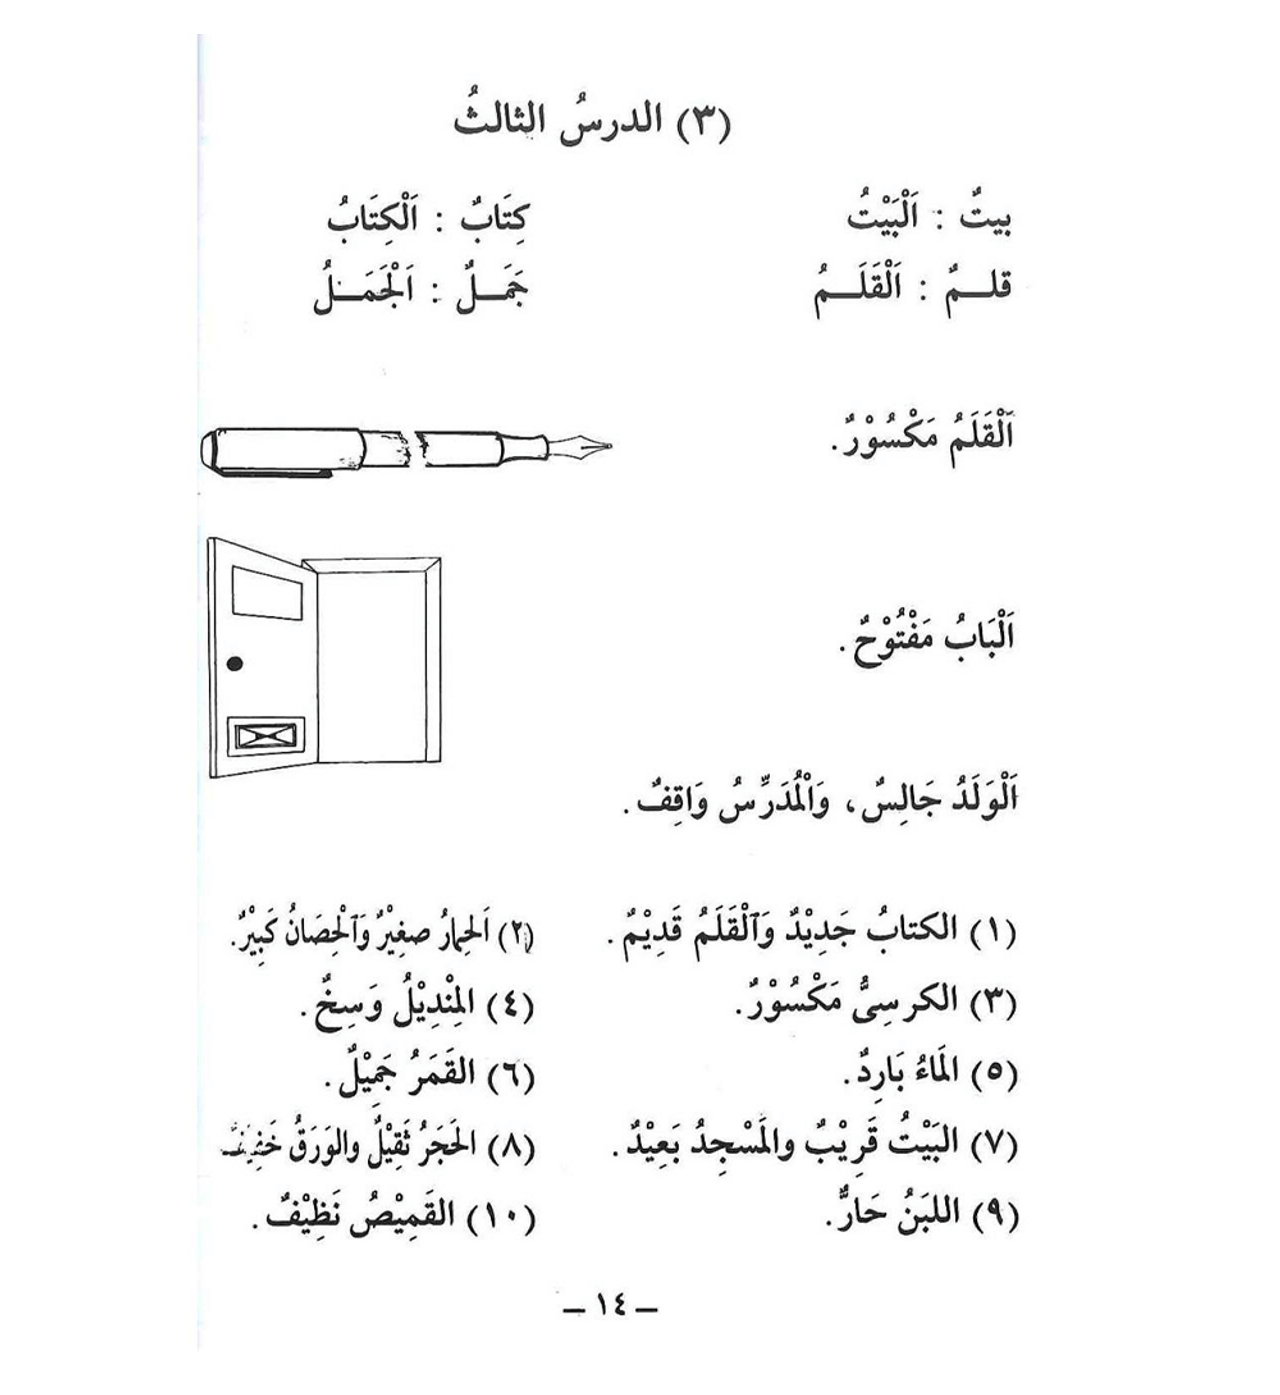 (٣) الدرسُ الثالثُ
بيتٌ : اَلْبَيْتُ كِتَابٌ : اَلْكِتَابُ
قلـمٌ : اَلْقَلَـمُ جَمَـلٌ : اَلْجَمَـلُ
اَلْقَلَمُ مَكْسُوْرٌ.
اَلْبَابُ مَفْتُوْحٌ.
اَلْوَلَدُ جَالِسٌ، وَالْمُدَرِّسُ وَاقِفٌ.
(١) الكتابُ جَدِيْدٌ وَٱلْقَلَمُ قَدِيْمٌ. (٢) اَلحِمارُ صغِيْرٌ وَٱلْحِصَانُ كَبِيْرٌ.
(٣) الكرسِىُّ مَكْسُوْرٌ. (٤) المِنْدِيْلُ وَسِخٌ.
(٥) المَاءُ بَارِدٌ. (٦) القَمَرُ جَمِيْلٌ.
(٧) البَيْتُ قَرِيْبٌ والمَسْجِدُ بَعِيْدٌ. (٨) الحَجَرُ ثَقِيْلٌ والوَرَقُ خَفِيْفٌ
(٩) اللبَنُ حَارٌّ. (١٠) القَمِيْصُ نَظِيْفٌ.
– ١٤ –